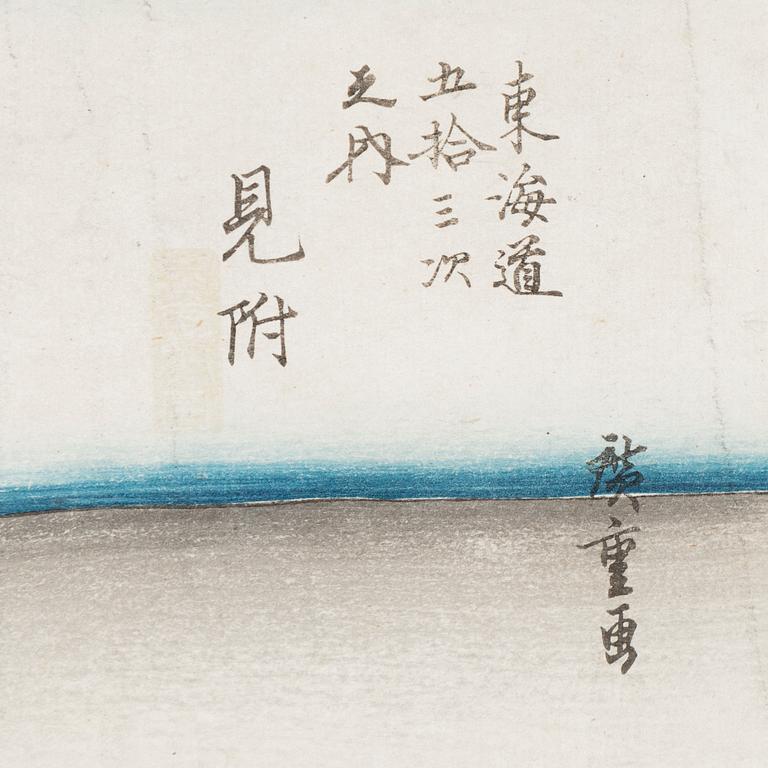 東海道
五拾三次
之内
見附
廣重画